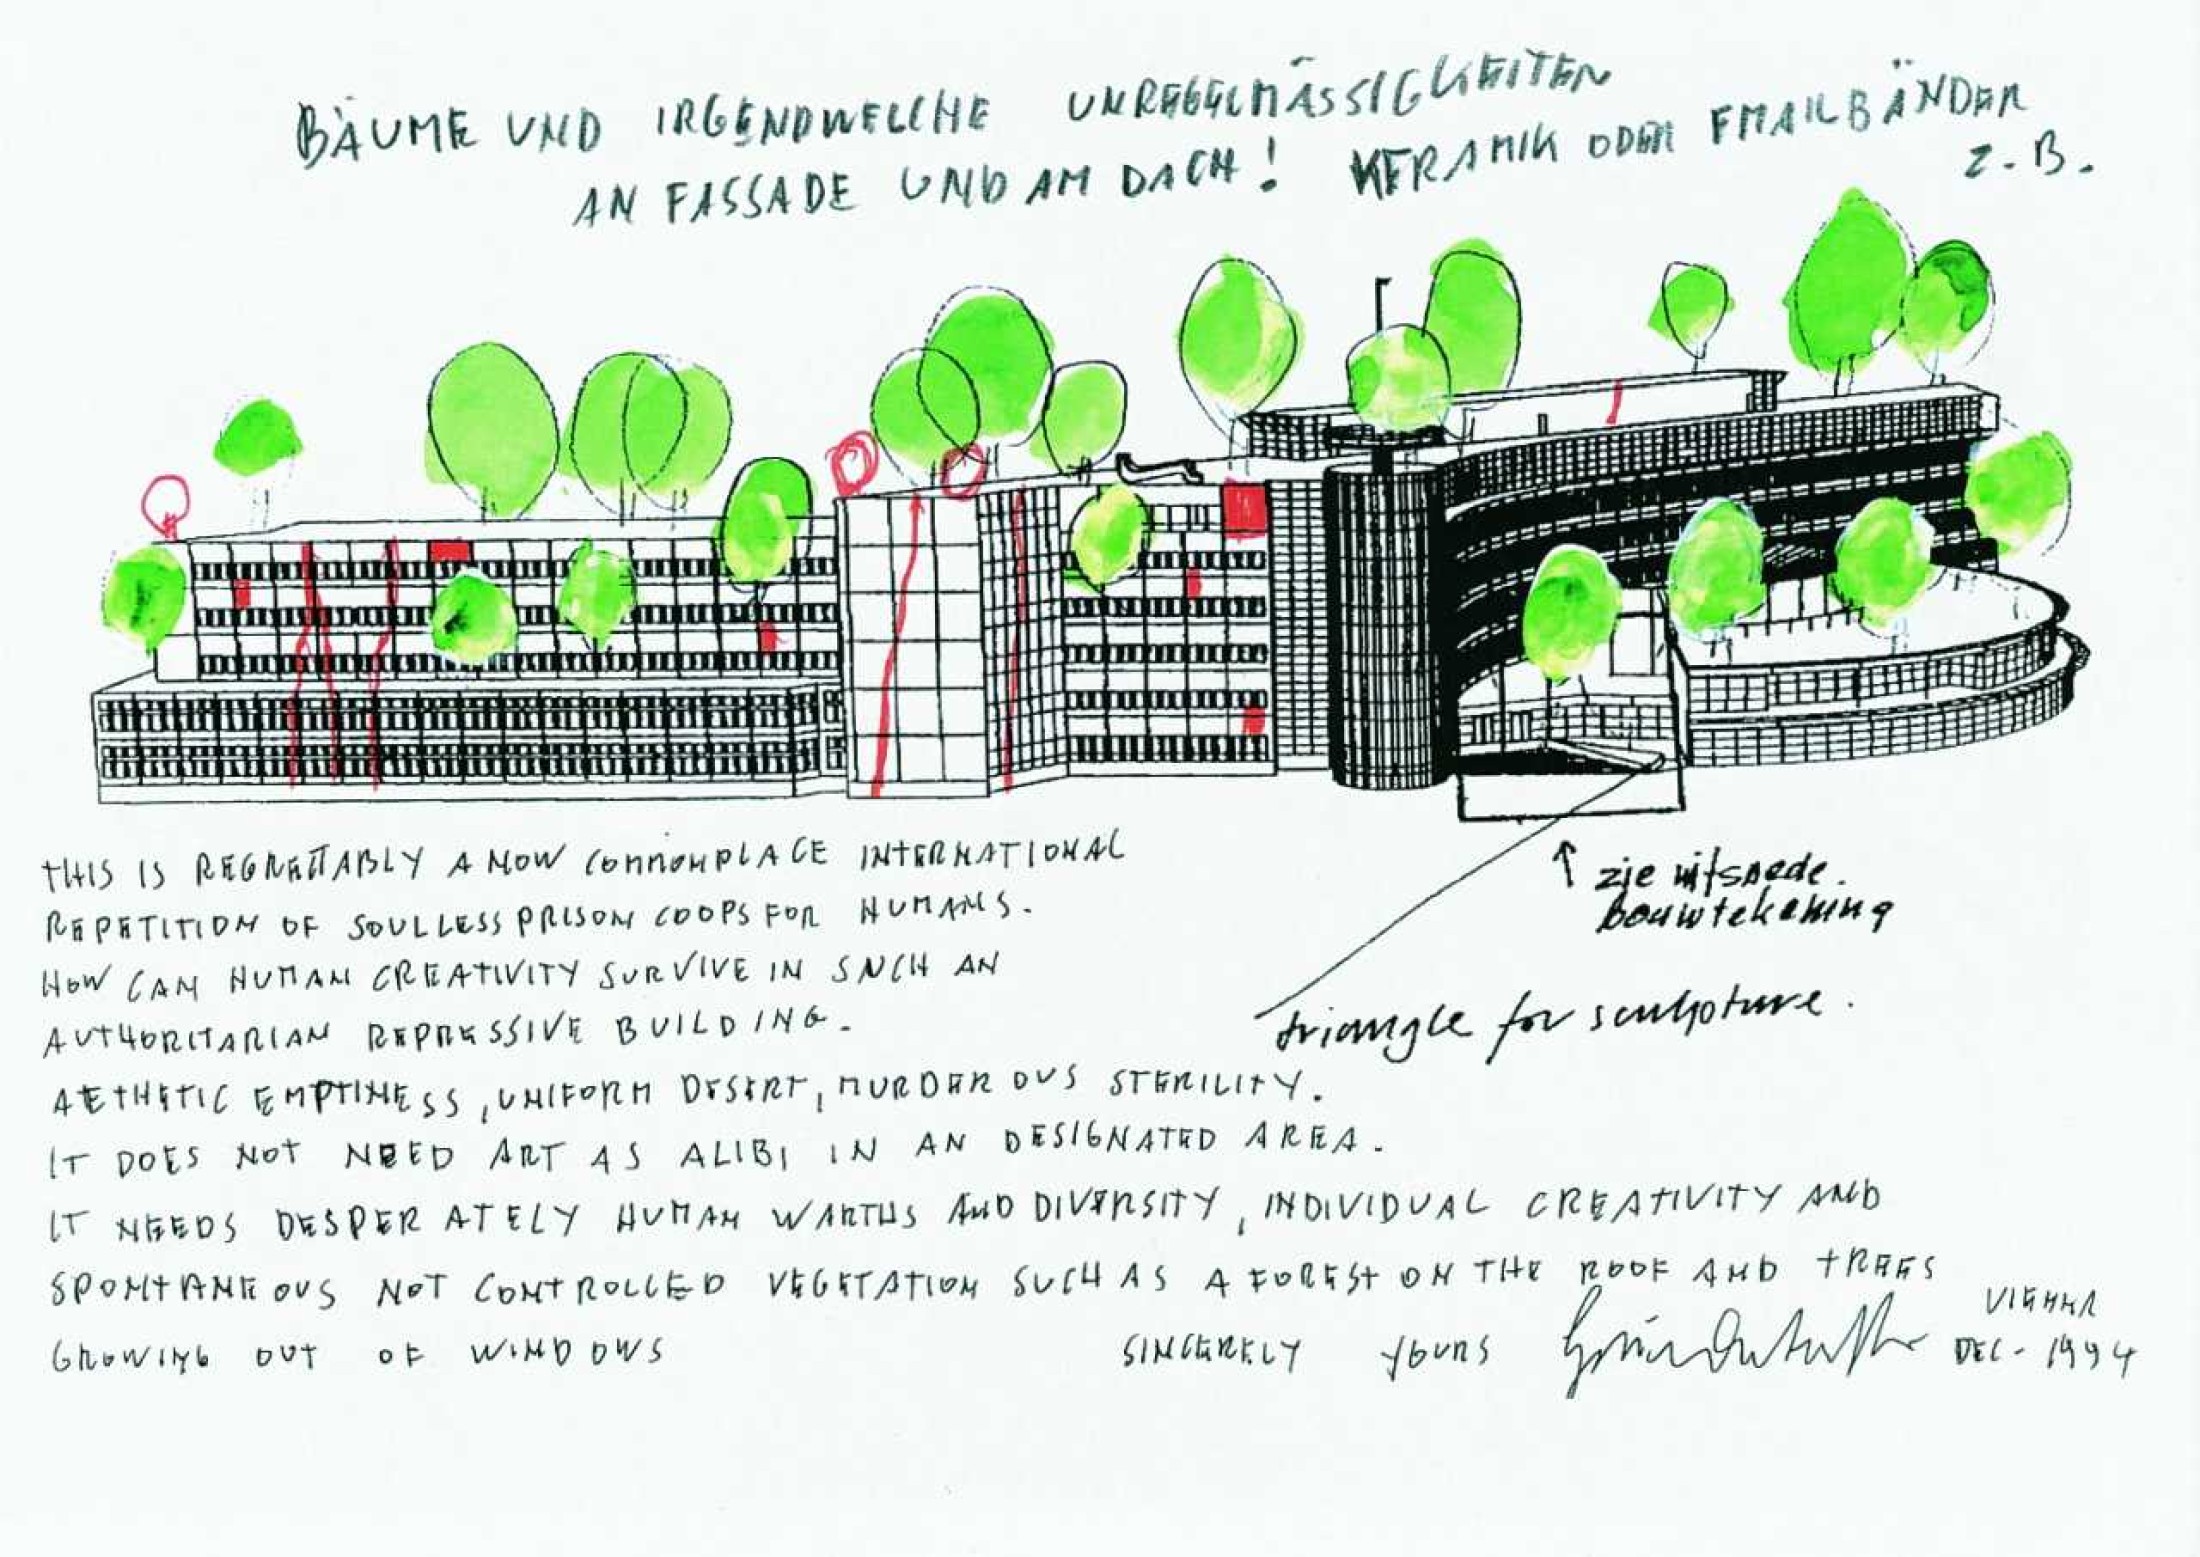 BÄUME UND IRGENDWELCHE UNREGELMÄSSIGKEITEN
AN FASSADE UND AM DACH! KERAMIK ODER EMAILBÄNDER
Z.B.
THIS IS REGRETTABLY A NOW COMMONPLACE INTERNATIONAL
REPETITION OF SOULLESS PRISON COOPS FOR HUMANS.
HOW CAN HUMAN CREATIVITY SURVIVE IN SUCH AN
AUTHORITARIAN REPRESSIVE BUILDING.
AETHETIC EMPTINESS, UNIFORM DESERT, MURDEROUS STERILITY.
IT DOES NOT NEED ART AS ALIBI IN AN DESIGNATED AREA.
IT NEEDS DESPERATELY HUMAN AND DIVERSITY, INDIVIDUAL CREATIVITY AND
SPONTANEOUS NOT CONTROLLED VEGETATION SUCH AS A FOREST ON THE ROOF AND TREES
GROWING OUT OF WINDOWS
SINCERELY YOURS
VIENNA
DEC-1994
↑ zie uitsnede.
bouwtekening
triangle for sculpture.